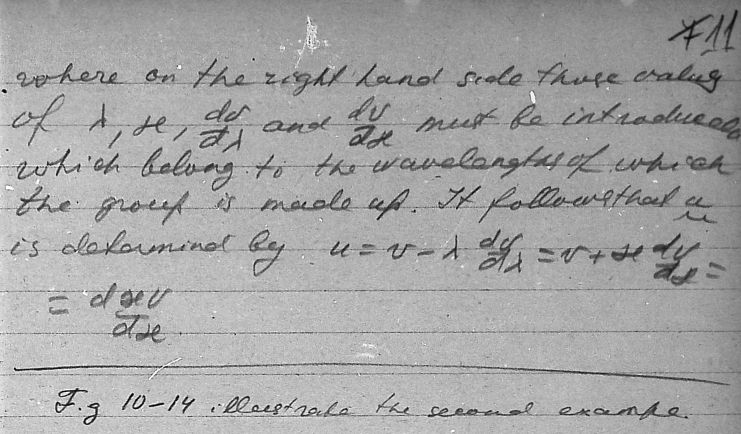 F11
where on the right hand side those values
of λ, ϰ, dv/dλ and dv/dϰ must be introduced
which belong to the wavelengths of which
the group is made up. It follows that u
is determined by u = v − λ dv/dλ = v + ϰ dv/dϰ =
= dϰv/dϰ
Fig 10-14 illustrate the second example.